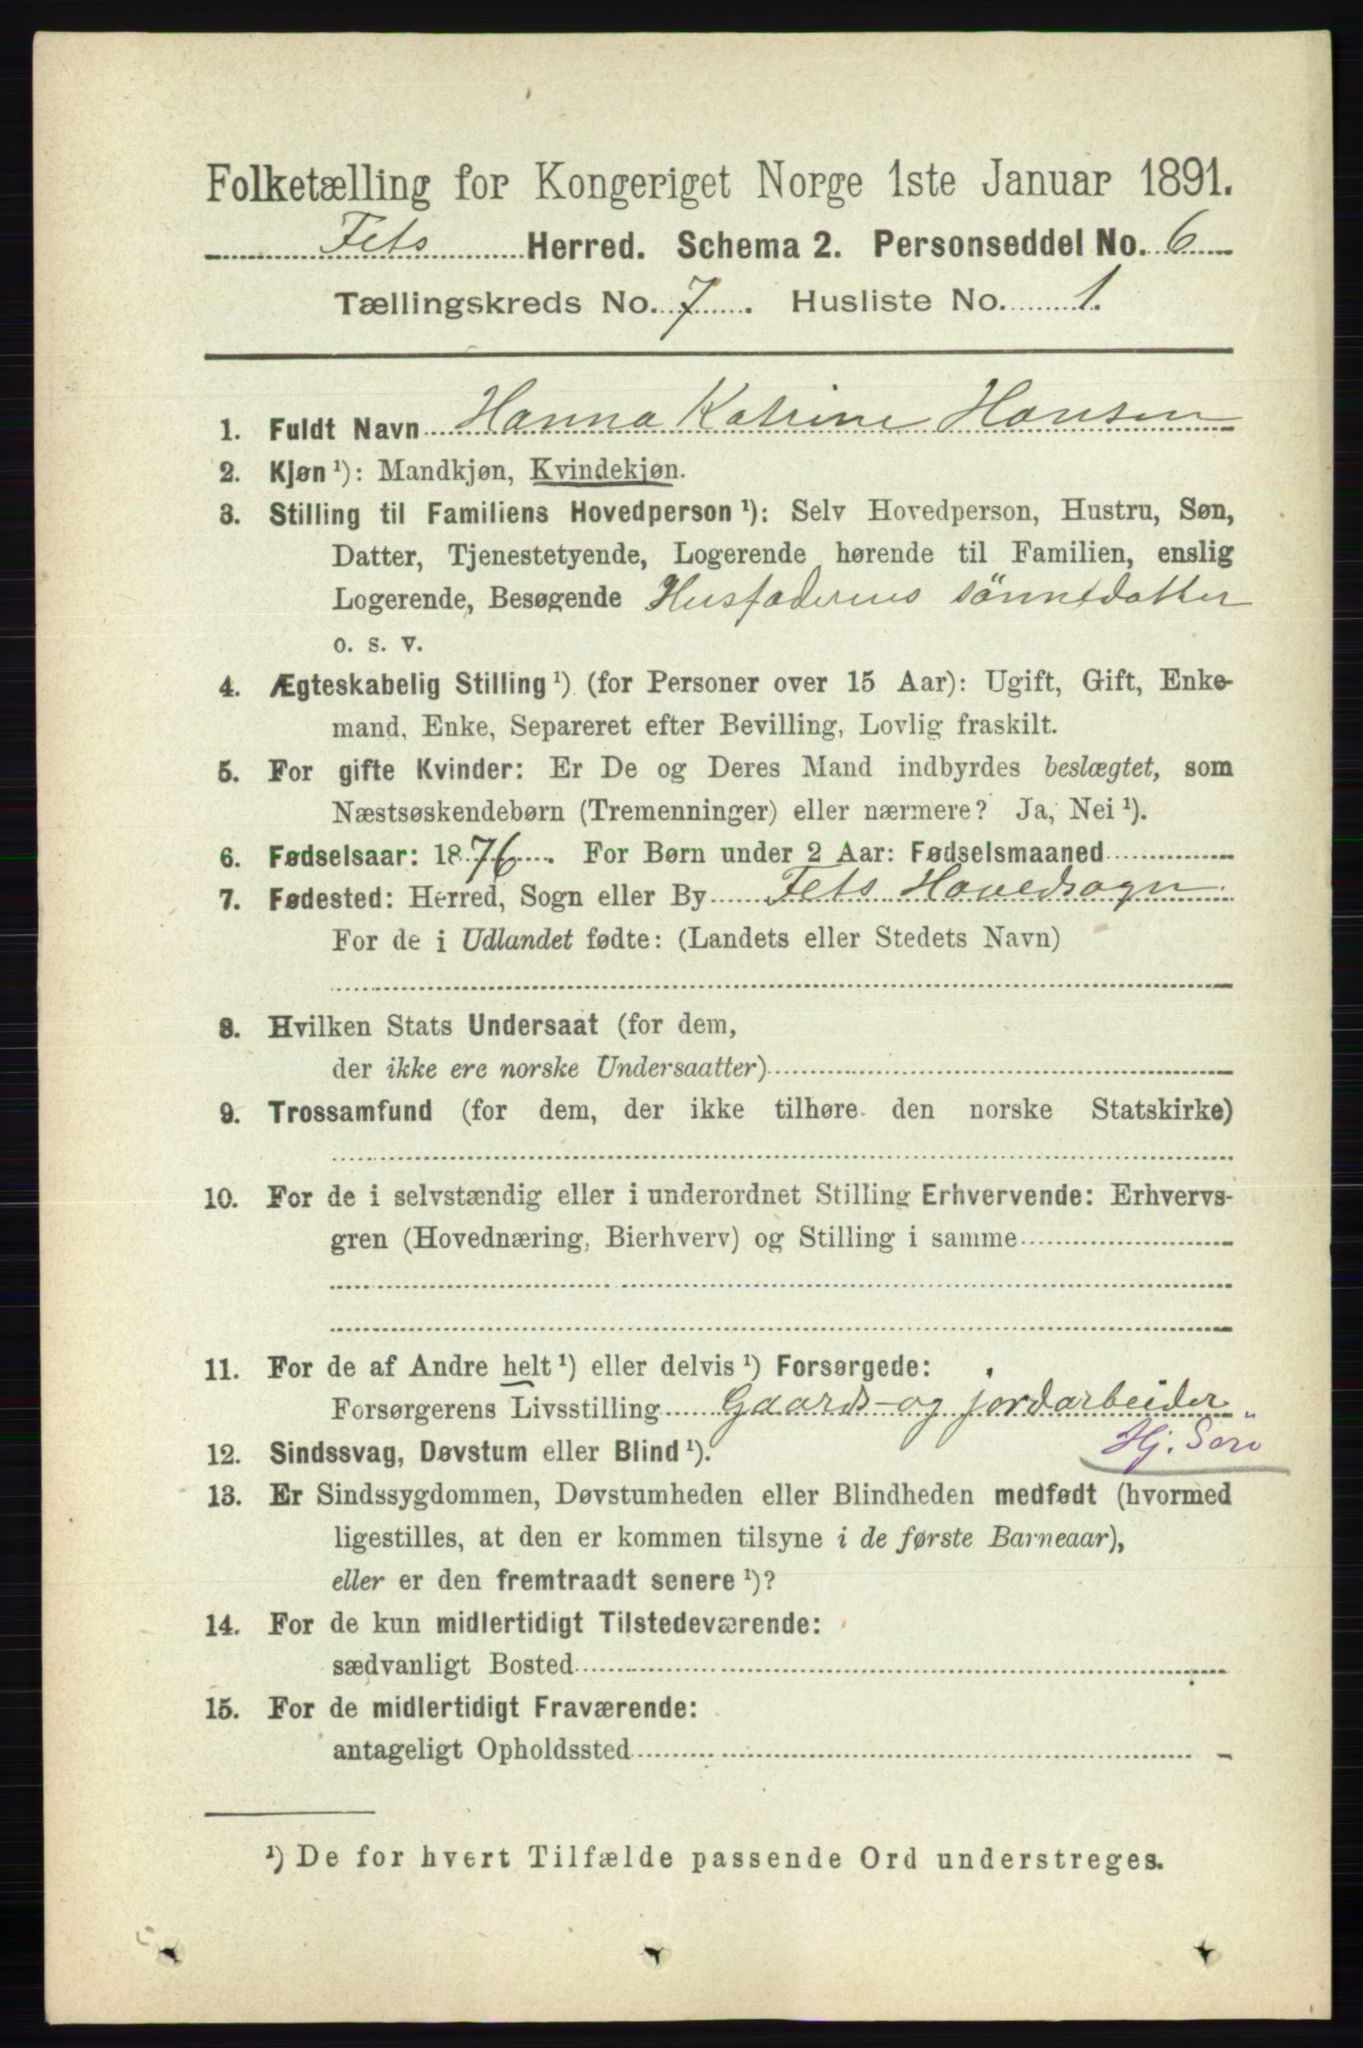 Folketælling for Kongeriget Norge 1ste Januar 1891.
Fets Herred. Schema 2. Personseddel No. 6
Tællingskreds No. 7. Husliste No. 1.
1. Fuldt Navn Hanna Katrine Hansen
2. Kjøn ¹): Mandkjøn, Kvindekjøn.
3. Stilling til Familiens Hovedperson ¹): Selv Hovedperson, Hustru, Søn,
Datter, Tjenestetyende, Logerende hørende til Familien, enslig
Logerende, Besøgende Husfaderens sønnedatter
o. s. v.
4. Ægteskabelig Stilling ¹) (for Personer over 15 Aar): Ugift, Gift, Enke-
mand, Enke, Separeret efter Bevilling, Lovlig fraskilt.
5. For gifte Kvinder: Er De og Deres Mand indbyrdes beslægtet, som
Næstsøskendebørn (Tremenninger) eller nærmere? Ja, Nei ¹).
6. Fødselsaar: 1876. For Børn under 2 Aar: Fødselsmaaned
7. Fødested: Herred, Sogn eller By Fets Hovedsogn.
For de i Udlandet fødte: (Landets eller Stedets Navn)
8. Hvilken Stats Undersaat (for dem,
der ikke ere norske Undersaatter)
9. Trossamfund (for dem, der ikke tilhøre den norske Statskirke)
10. For de i selvstændig eller i underordnet Stilling Erhvervende: Erhvervs-
gren (Hovednæring, Bierhverv) og Stilling i samme
11. For de af Andre helt ¹) eller delvis ¹) Forsørgede:
Forsørgerens Livsstilling Gaards- og jordarbeider
Hj.
12. Sindssvag, Døvstum eller Blind ¹).
13. Er Sindssygdommen, Døvstumheden eller Blindheden medfødt (hvormed
ligestilles, at den er kommen tilsyne i de første Barneaar),
eller er den fremtraadt senere ¹)?
14. For de kun midlertidigt Tilstedeværende:
sædvanligt Bosted
15. For de midlertidigt Fraværende:
antageligt Opholdssted
¹) De for hvert Tilfælde passende Ord understreges.